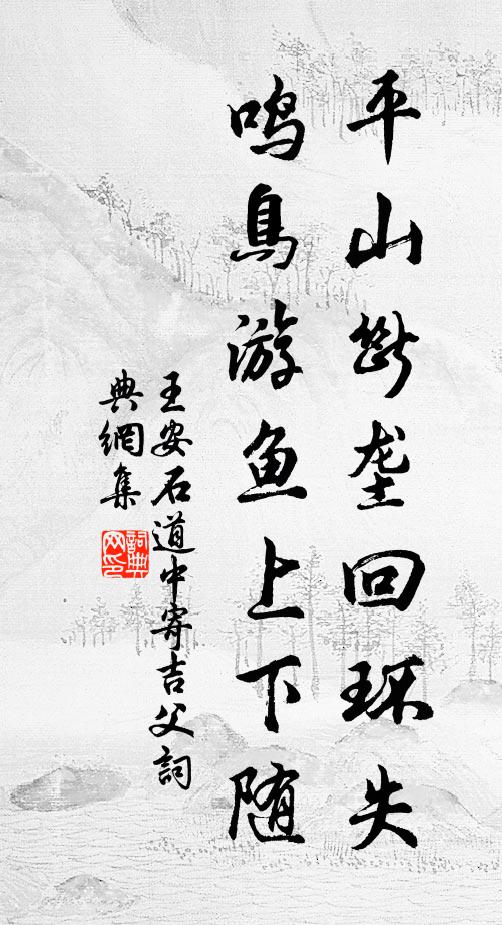 平山断垄回环失
鸣鳥游鱼上下随
王安石道中寄吉父詞
典網集
詞典
网印